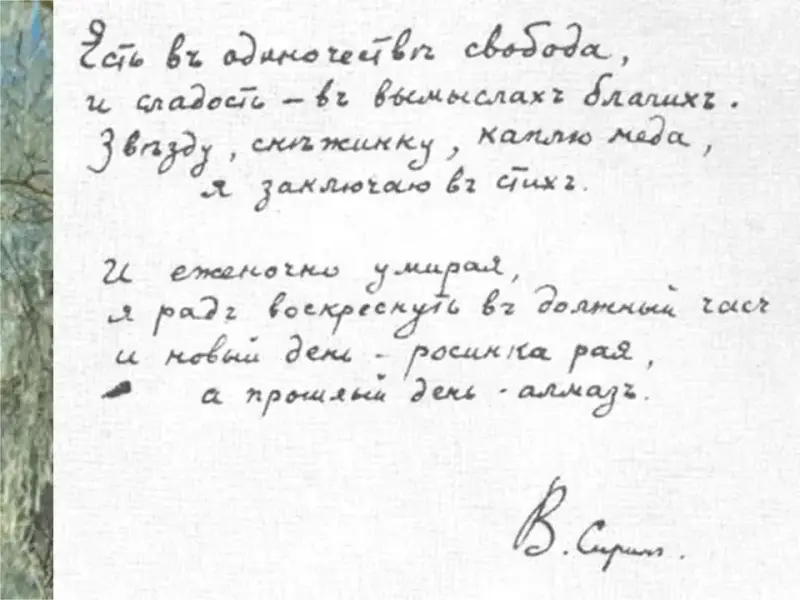 Есть въ одиночествѣ свобода,
и сладость – въ вымыслахъ благихъ.
Звѣзду, снѣжинку, каплю меда,
я заключаю въ стихъ.
И еженочно умирая,
я радъ воскреснуть въ должный часъ
и новый день - росинка рая,
а прошлый день - алмазъ.
В. Сиринъ.